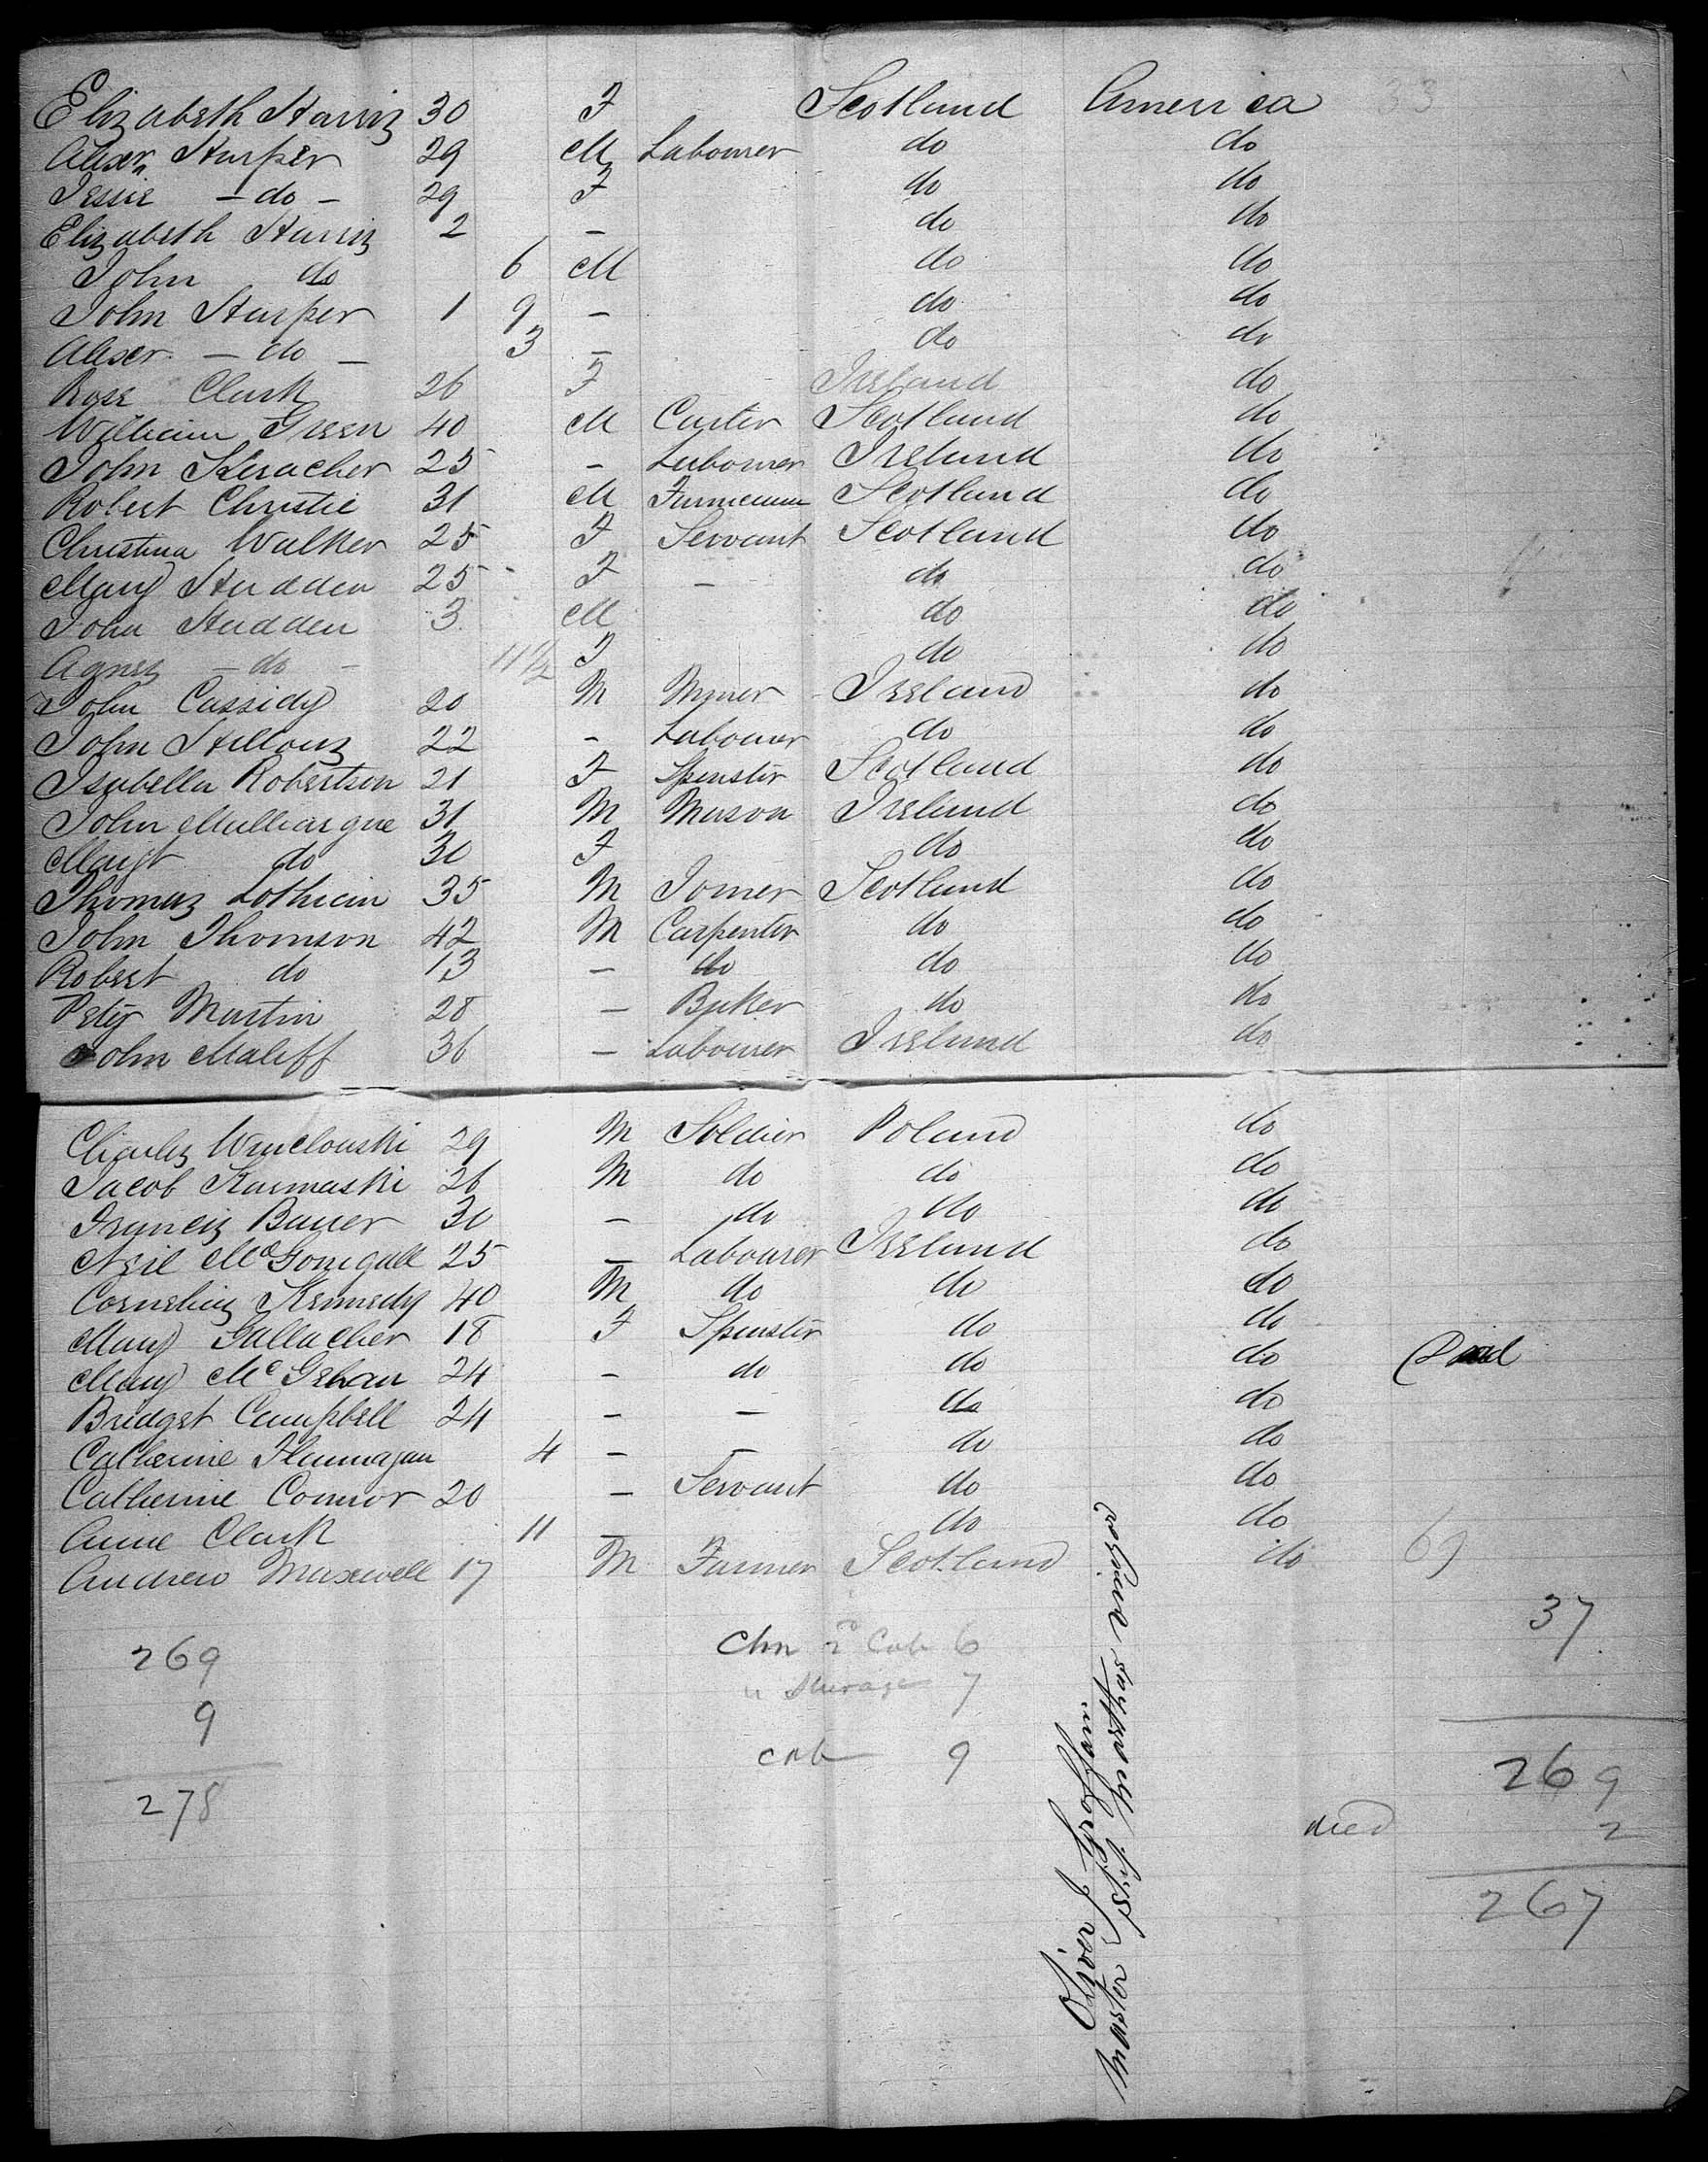 Elizabeth Harris 30 F Scotland America 33
Alexr Harper 29 M Labourer do do
Jessie - do - 29 F do do
Elizabeth Harris 2 - do do
John do 6 M do do
John Harper 1 9 - do do
Alexr - do - 3 - do do
Rose Clark 26 F Ireland do
William Green 40 M Carter Scotland do
John Keracher 25 - Labourer Ireland do
Robert Christie 31 M Scotland do
Christina Walker 25 F Servant Scotland do
Mary Hadden 25 F - do do
John Hadden 3 M do do
Agnes - do - 11 1/2 F do do
John Cassidy 20 M Miner Ireland do
John 22 - Labourer do do
Isabella Robertson 21 F Spinster Scotland do
John Mullargue 31 M Mason Ireland do
Margt do 30 F do do
Thomas Lothian 35 M Joiner Scotland do
John Thomson 42 M Carpenter do do
Robert do 13 - do do do
Peter Martin 28 - Baker do do
John Maliff 36 - Labourer Ireland do
Charles Wauclouski 29 M Soldier Poland do
Jacob Karmaski 26 M do do do
Francis Bauer 30 - do do do
Neil McGonigall 25 - Labourer Ireland do
Cornelius Kennedy 40 M do do do
Mary Gallacher 18 F Spinster do do
Mary McGehan 24 - do do do
Bridget Campbell 24 - - do do
Catherine Flannagan 4 - - do do
Catherine Connor 20 - Servant do do
Anne Clark 11 - do do
Andrew Maxwell 17 M Farmer Scotland do 69
37
269
9
278
Chn 2 Cab 6
" Steerage 7
cab 9
269
died 2
267
Oliver J
Master Ship Martha